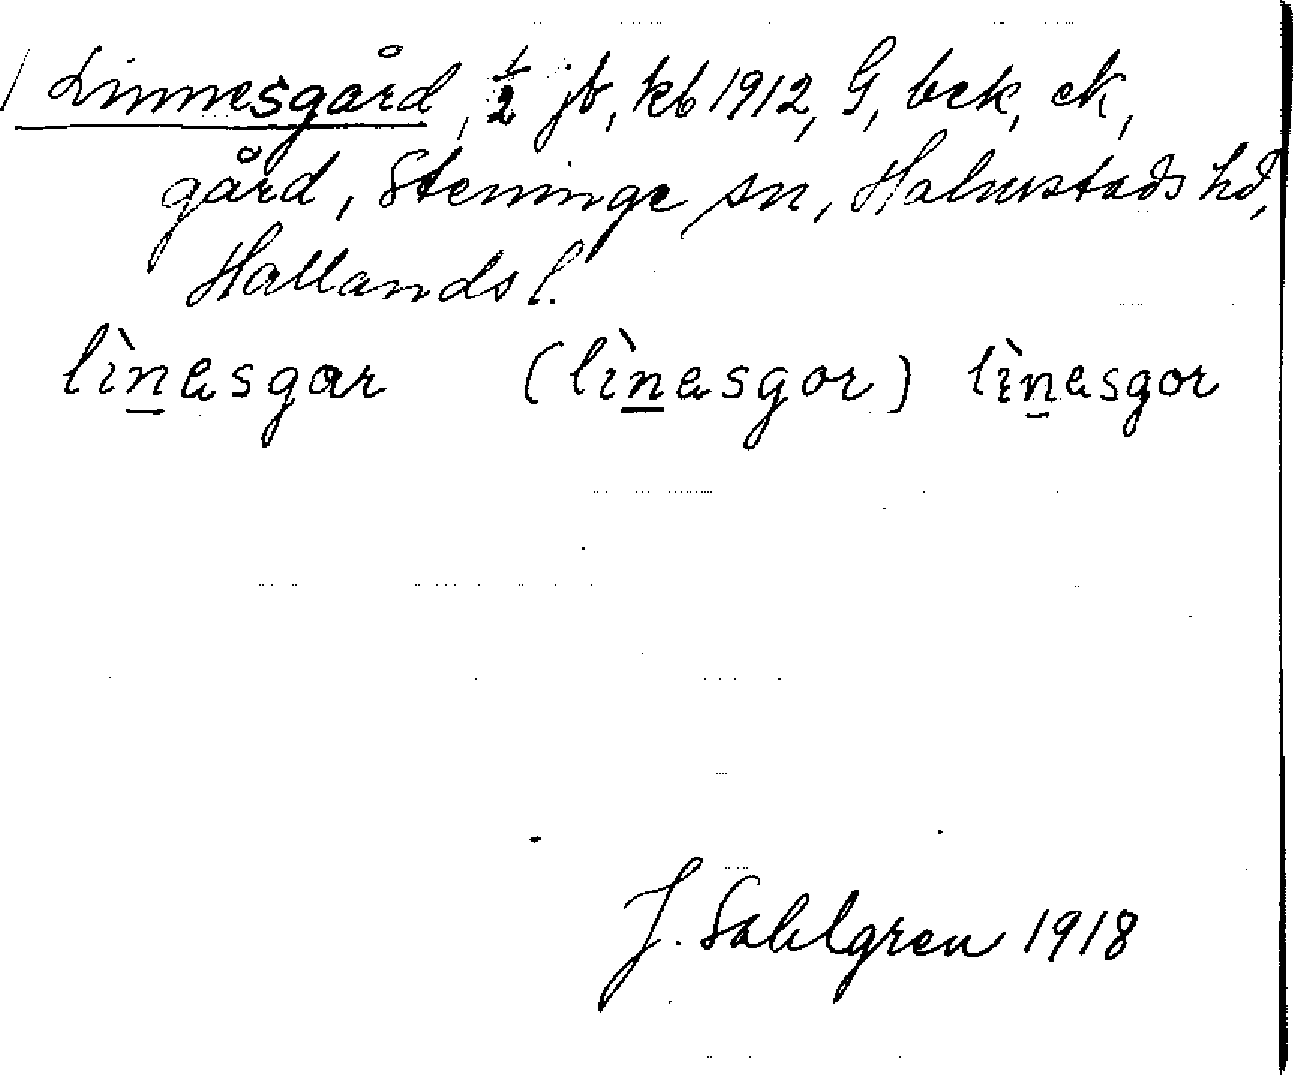 Linnesgård, 1/2 jb, kb 1912, G, bek, ek,
gård, Steninge sn, Halmstads hd,
Hallands l.
lìnesgar (lìnesgor) lìnesgor
J. Sahlgren 1918